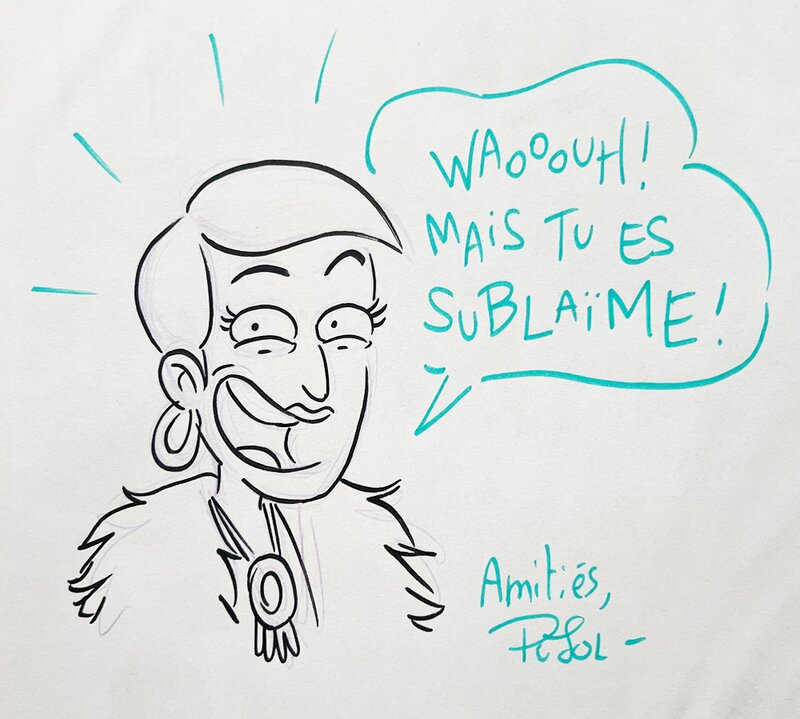 WAOOOUH!
MAIS TU ES
SUBLAÏME!
Amitiés,